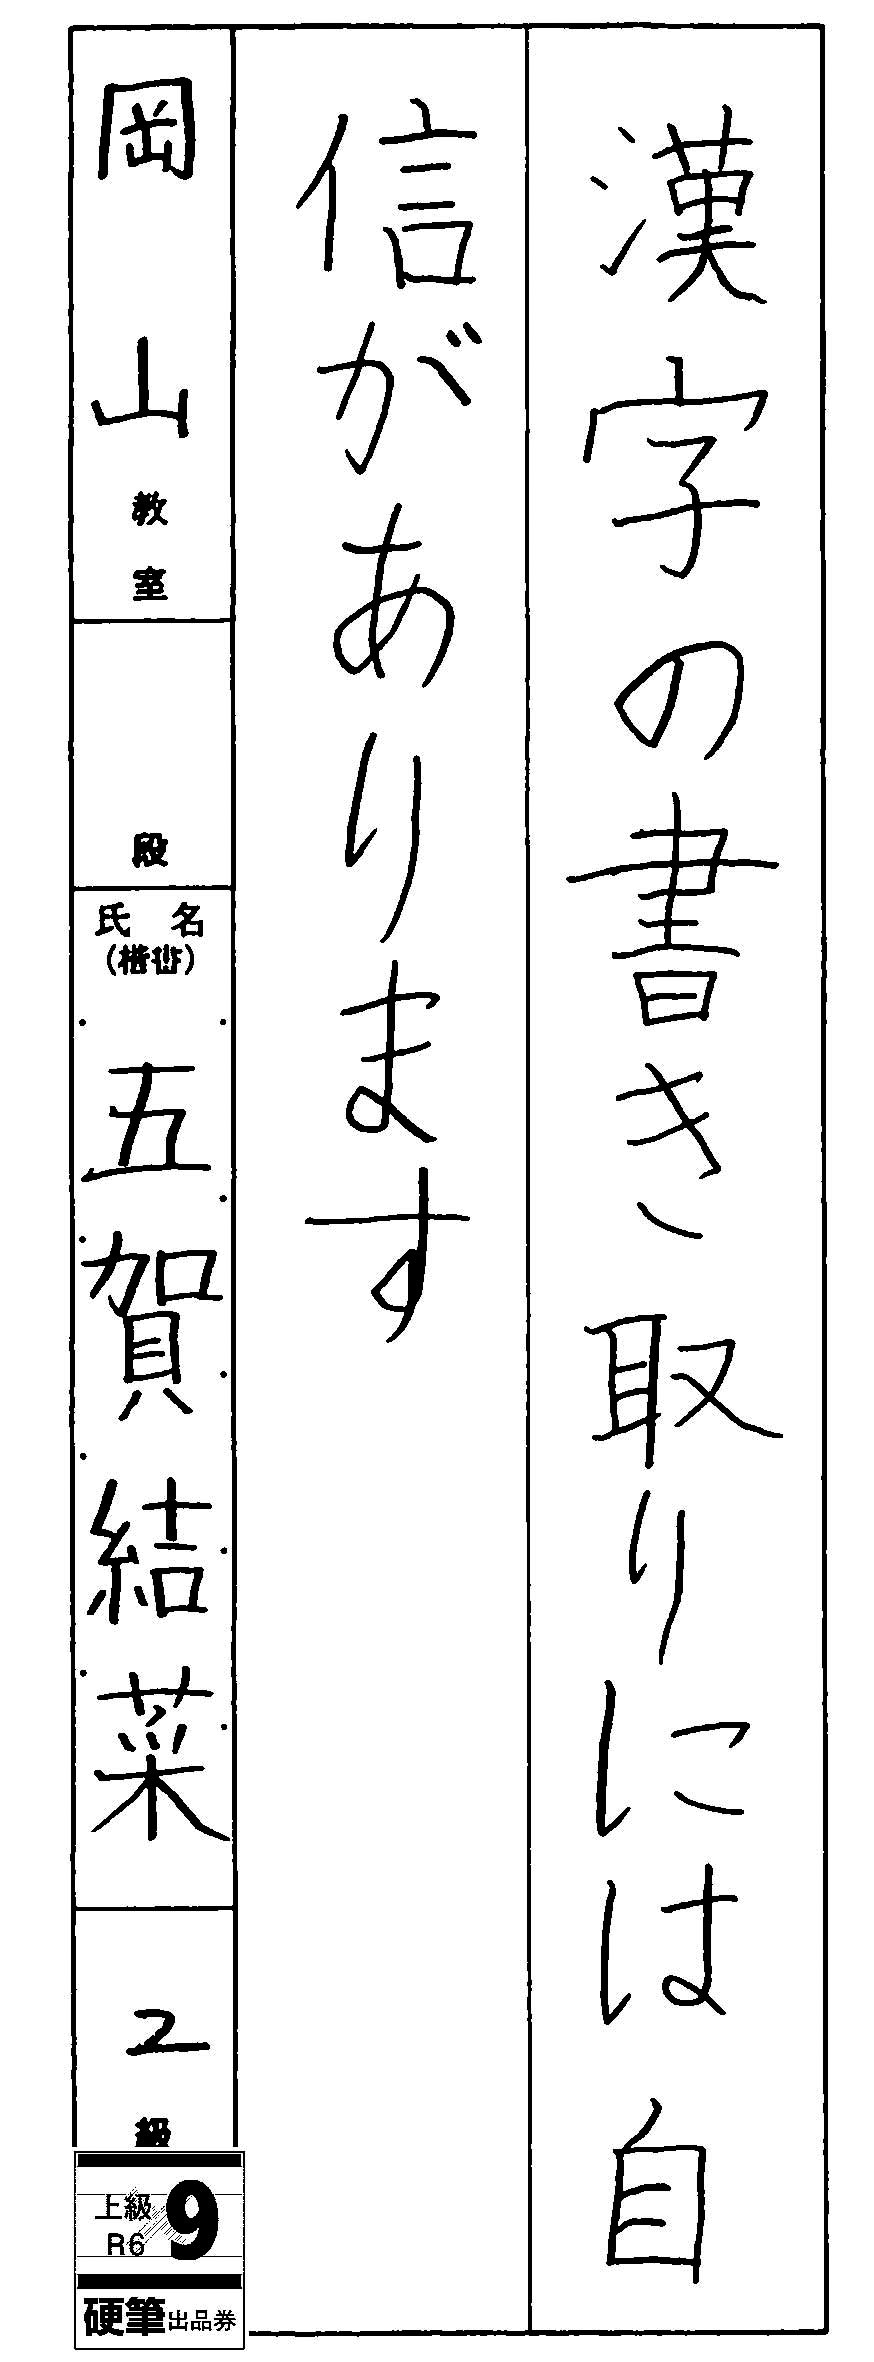 漢字の書き取りには自
信があります
岡山教室
段
氏名
(楷書)
五賀結菜
2級
上級
R6
9
硬筆出品券